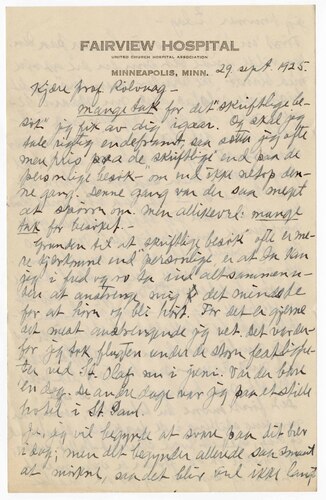 FAIRVIEW HOSPITAL
UNITED CHURCH HOSPITAL ASSOCIATION
MINNEAPOLIS, MINN. 29 sept. 1925.
Kjære prof Rölvaag -
mange tak for det "skriftlige be-
søk" jeg fik av dig igaar. Og skal jeg
tale rigtig endeframt, saa sætter jeg ofte
mer pris paa de skriftlige end paa de
personlige besøk - om vel ikke netop den-
ne gang. Denne gang var der saa meget
at spørre om. Men allikevel: mange
tak for besøket. -
Grunden til at skriftlige besøk ofte er me-
re kjærkomne end personlige er at da kan
jeg i fred og ro ta ind altsammen u-
ten at anstrenge mig det mindste
for at høre og bli hørt. For det er gjerne
det mest anstrengende jeg vet. Det var der-
for jeg tok flugten under de store festligheter
ved St. Olaf nu i juni. Var der bare
en dag. De andre dage var jeg paa et stille
hotel i St. Paul.
Ja, jeg vil begynde at svare paa dit brev
i dag; men det begynder allerede saa smaat
at mørkne, saa det blir vel ikke langt